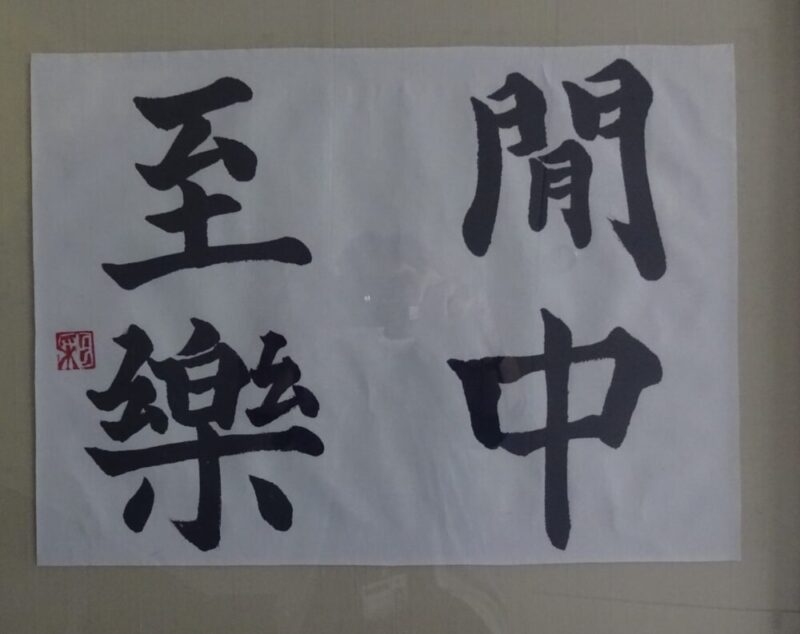 閒中
至樂